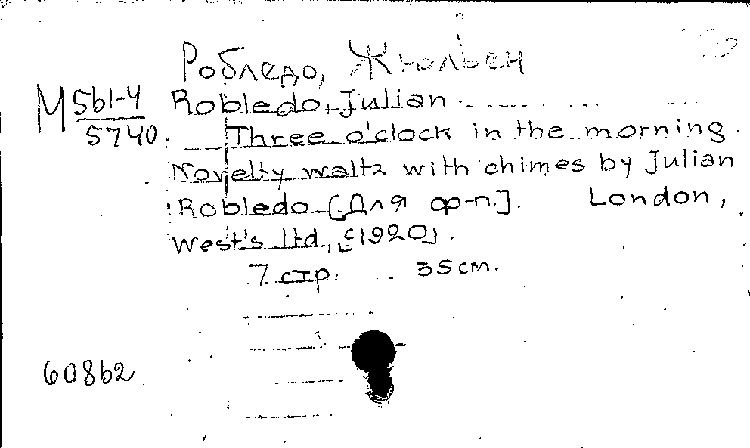 Робледо, Жюльен
М 561-4 Robledo, Julian
5740. Three o'clock in the morning.
Novelty waltz with chimes by Julian
Robledo [Для ф-п.]. London,
West's ltd, [1920].
7 стр. 35 см.
60862